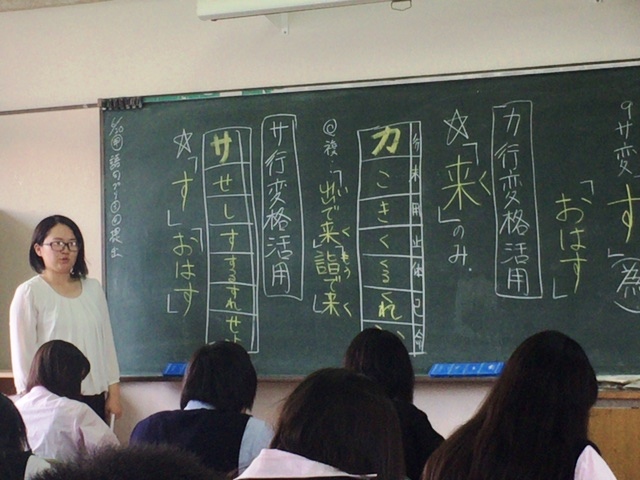 9サ変
す(為)
「おはす」
カ行変格活用
☆「来」のみ.
く
分未用止体已命
カ
こ
き
く
くる
くれ
◎複…「出で来」「詣で来」
い
く
もう
く
サ行変格活用
サ
せ
し
す
する
すれ
せよ
☆「す」「おはす」